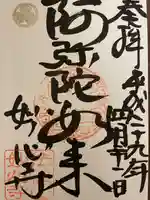 奉拝 平成二十九年
四月十二日
阿弥陀如来
妙心寺